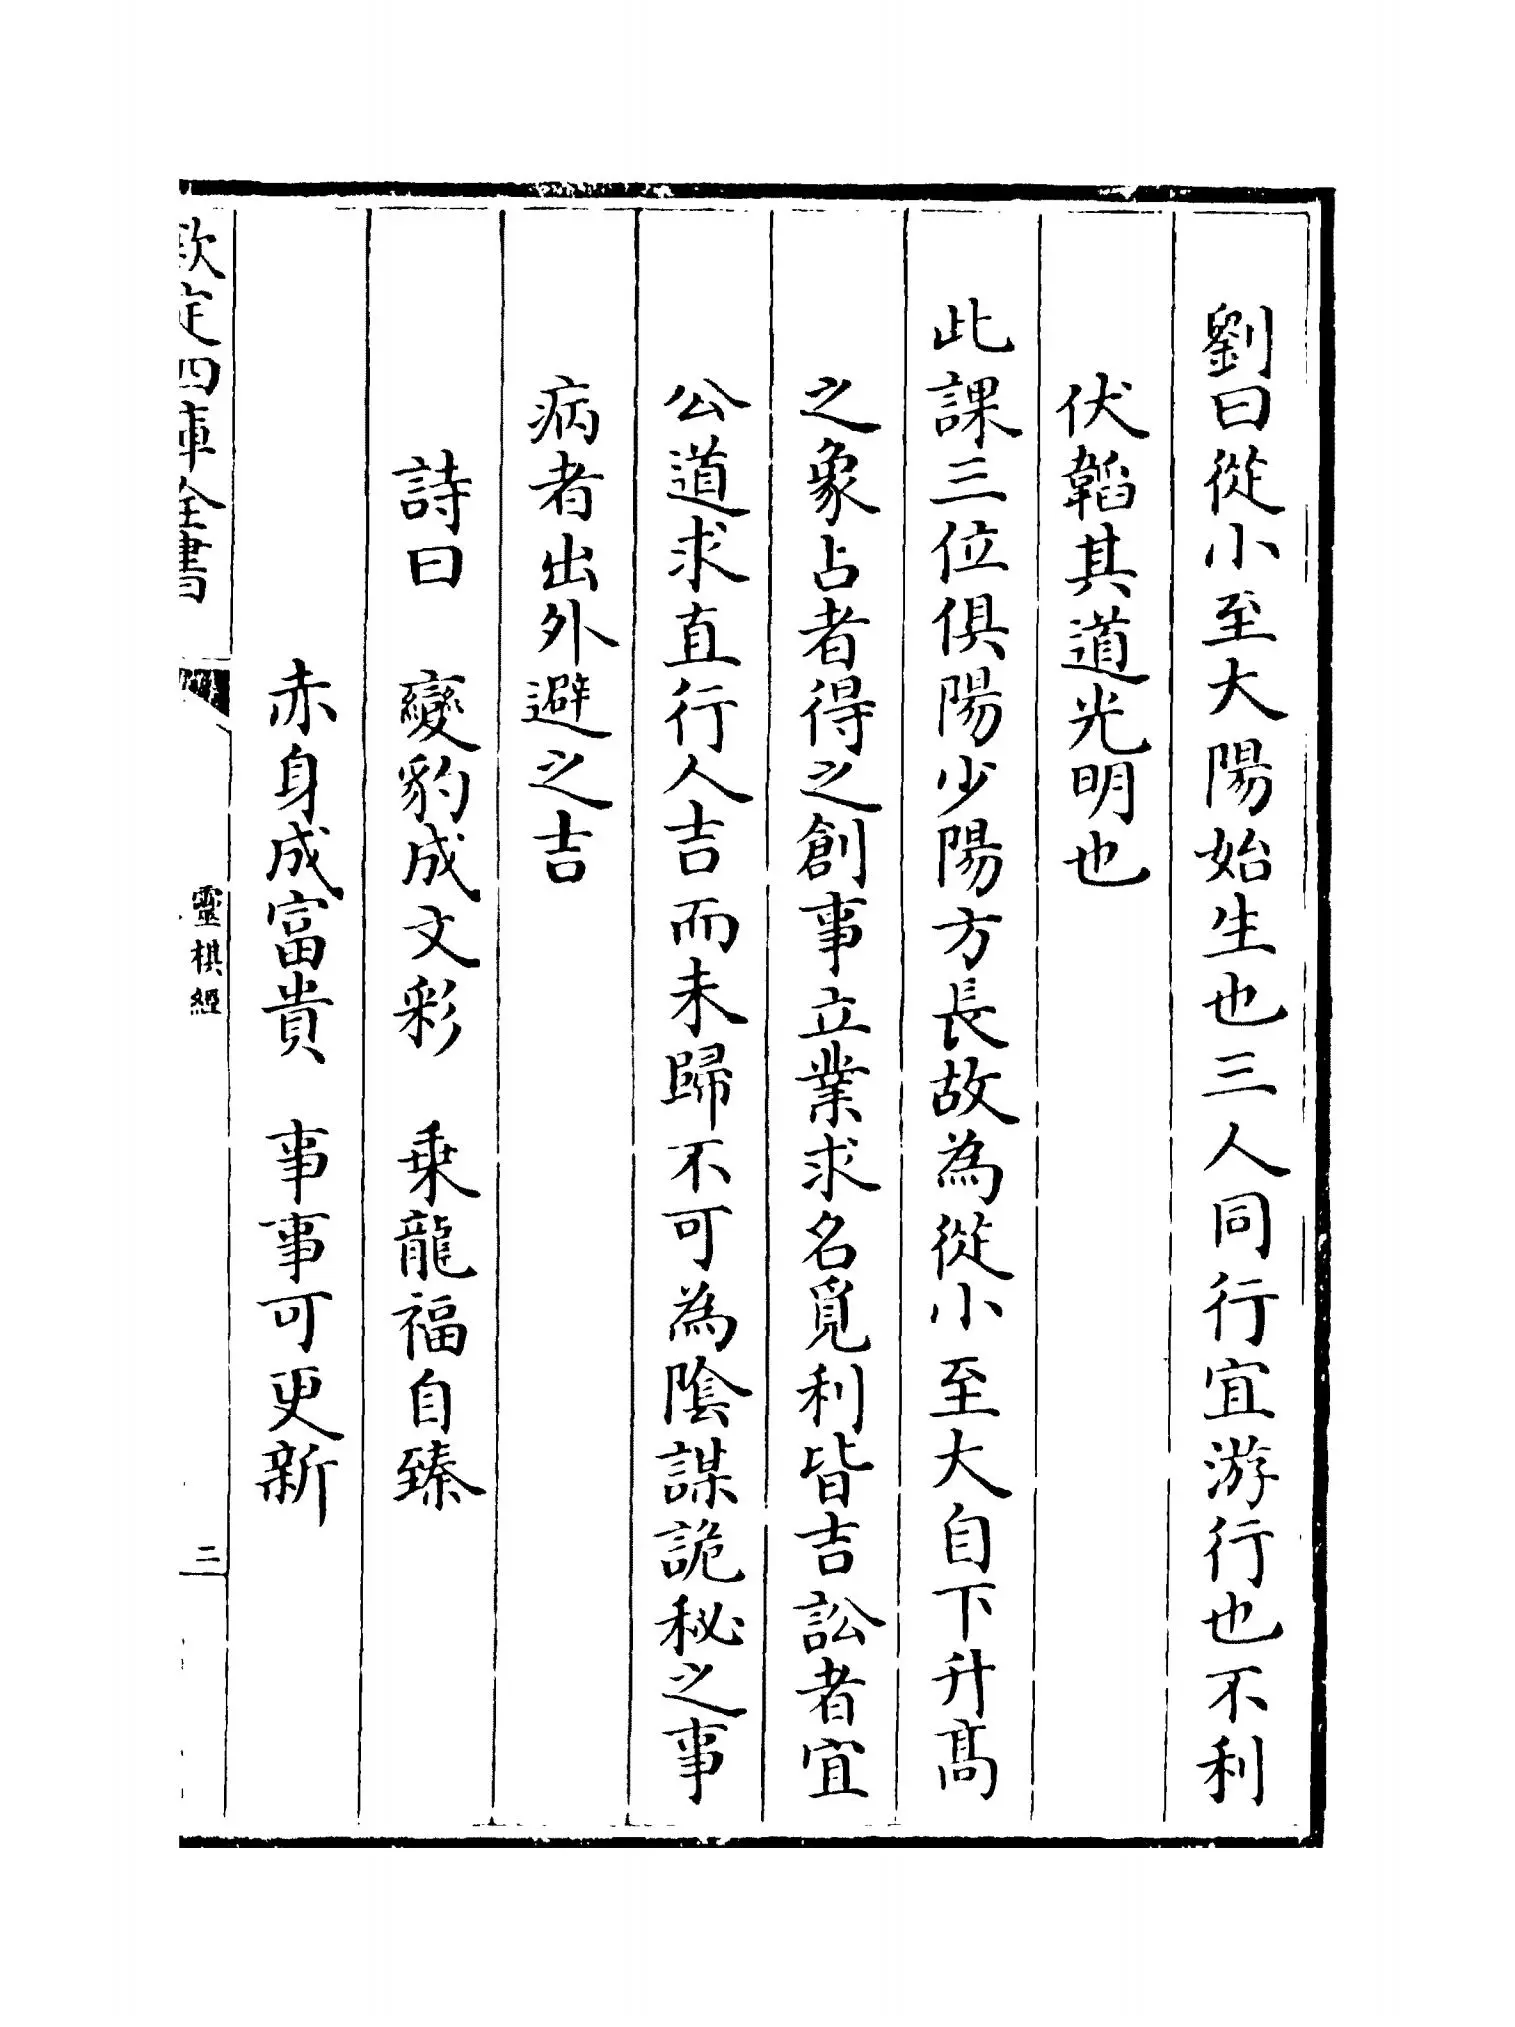 劉曰從小至大陽始生也三人同行宜游行也不利
伏韜其道光明也
此課三位俱陽少陽方長故為從小至大自下升髙
之象占者得之創事立業求名覓利皆吉訟者宜
公道求直行人吉而未歸不可為隂謀詭秘之事
病者出外避之吉
詩曰　變豹成文彩　乗龍福自臻
赤身成富貴　事事可更新
欽定四庫全書
靈棋經
二